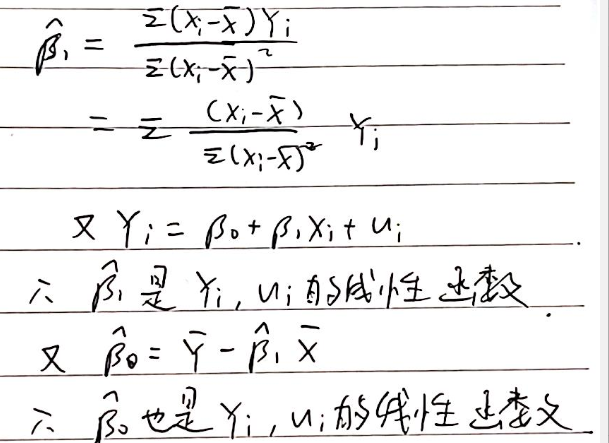 β̂₁ = Σ(Xᵢ-X̄)Yᵢ / Σ(Xᵢ-X̄)²
= Σ (Xᵢ-X̄) / Σ(Xᵢ-X̄)² Yᵢ
又 Yᵢ = β₀ + β₁Xᵢ + uᵢ
∴ β̂₁ 是 Yᵢ, uᵢ 的线性函数.
又 β̂₀ = Ȳ - β̂₁ X̄
∴ β̂₀ 也是 Yᵢ, uᵢ 的线性函数